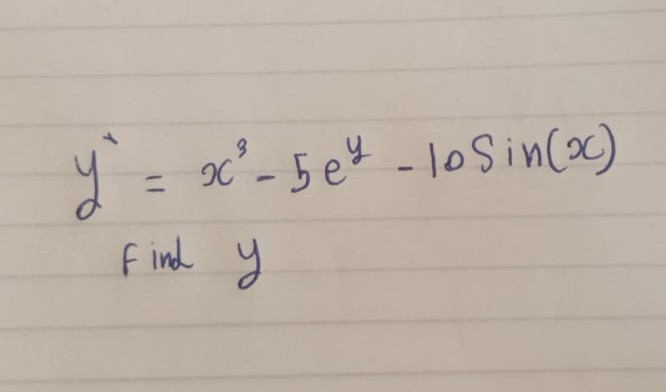 y` = x³ - 5e^y - 10Sin(x)
Find y